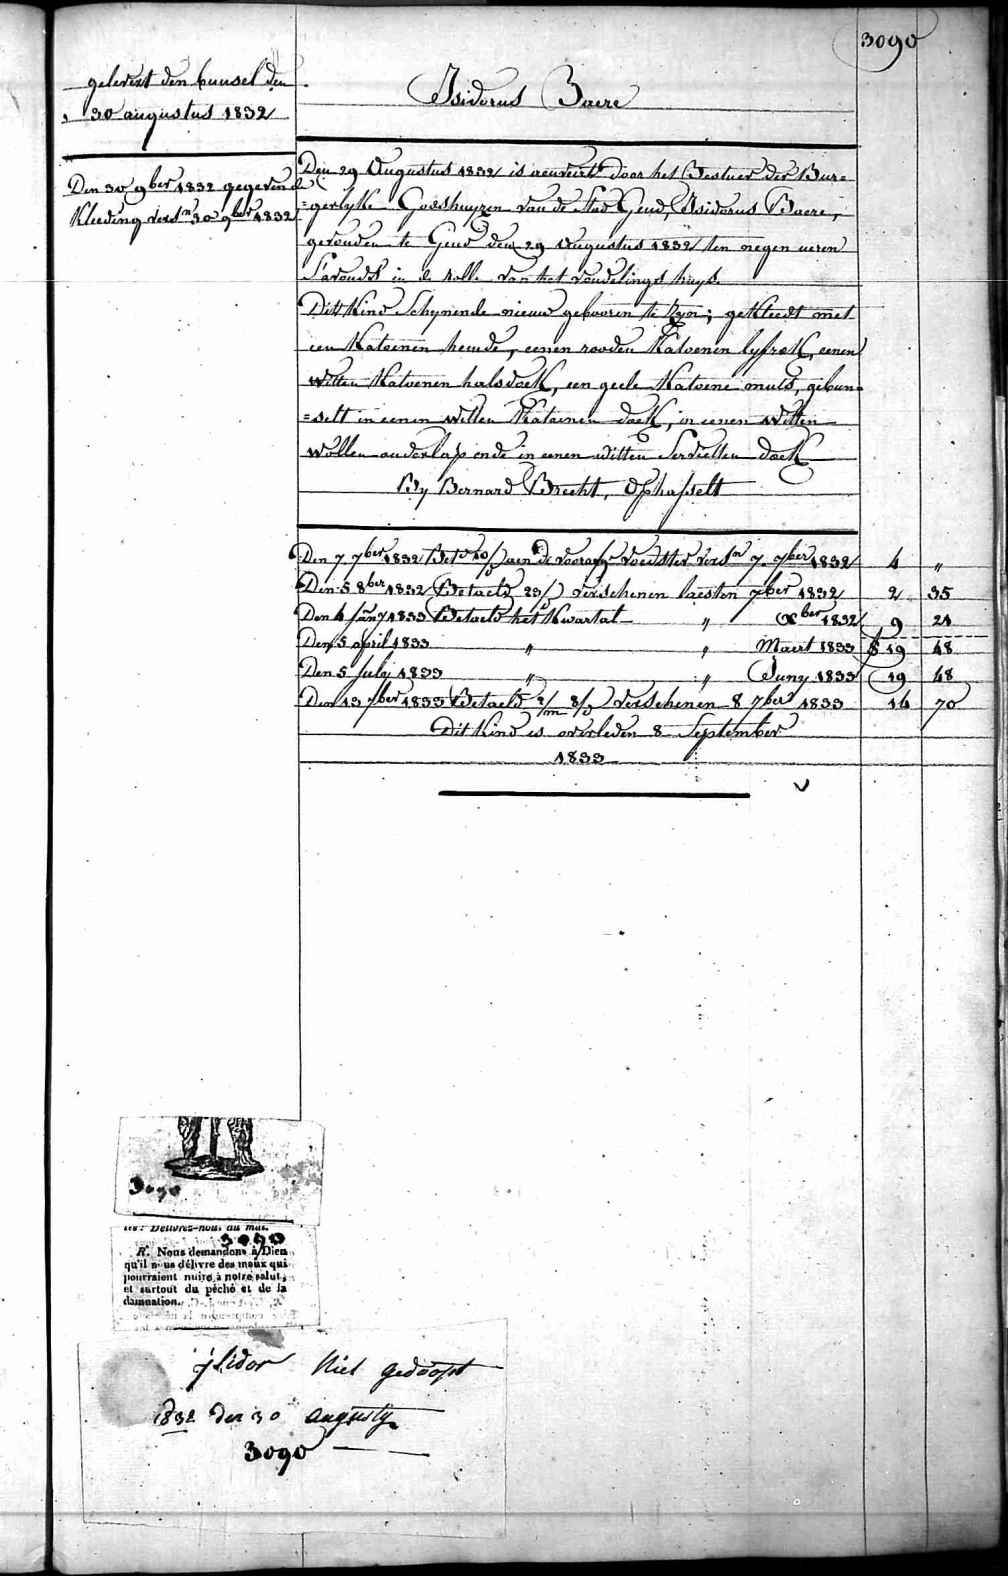 3090
gelevert den bunsel den
30 augustus 1832
Isidorus Baere
Den 30 9ber 1832 gegeven de
Kleeding versn 30 9ber 1832
Den 29 Augustus 1832 is aenveird door het Bestuer der Bur=
=gerlyke Godshuyzen van de stad Gend, Isidorus Baere,
gevonden te Gend den 29 Augustus 1832 ten negen ueren
S'avonds in de rolle van het vondelings huys.
Dit Kind Schynende nieuw gebooren te Zyn; gekleedt met
een Katoenen hemde, eenen rooden Katoenen lyfrok, eenen
Witten Katoenen halsdoek, een geele Katoene muts, gebun=
=selt in eenen Witten Katoenen doek, in eenen Witten
Wollen onderlap ende in eenen witten Servietten doek
By Bernard Brecht, Ophasselt
Den 7 7ber 1832 Betd 10/ aen de voorafg voedster versn 7 7ber 1832 4 "
Den 5 8ber 1832 Betaeld 23/ verschenen laesten 7ber 1832 2 35
Den 4 Jany 1833 Betaeld het Kwartal " Xber 1832 9 21
Den 5 april 1833 " " Maert 1833 19 48
Den 5 July 1833 " " Juny 1833 19 48
Den 13 7ber 1833 Betaeld 2/m 8/ verschenen 8 7ber 1833 14 70
Dit Kind is overleden 8 September
1833
3090
Délivrez-nous du mal.
3090
R. Nous demandons à Dieu
qu'il nous délivre des maux qui
pourraient nuire à notre salut,
et surtout du péché et de la
damnation.
ysidor Niet gedoopt
1832 den 30 augusty
3090